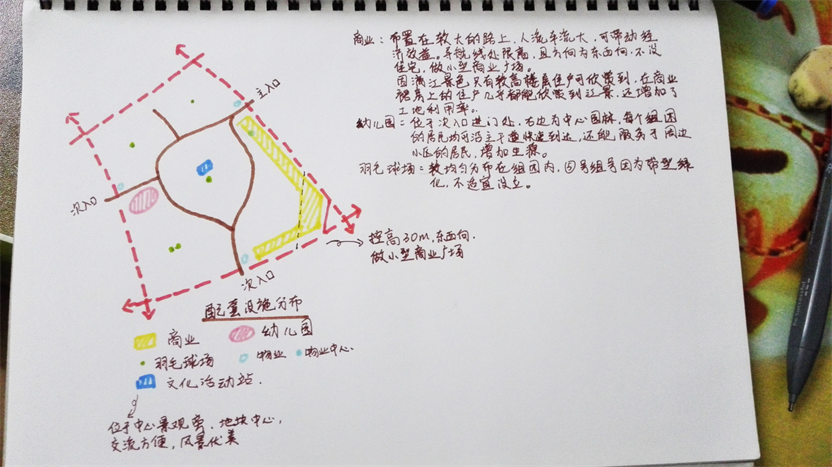 商业：布置在较大的路上，人流车流大，可带动经
济效益。导航线处限高，且方向为东西向，不设
住宅，做小型商业广场。
因满江景色只有较高楼层住户可欣赏到，在商业
楼房上的住户几乎都能欣赏到江景，还增加了
土地利用率。
幼儿园：位于次入口进门处，右边为中心园林，每个组团
的居民均可沿主干道快速到达，还能服务于周边
小区的居民，增加生源。
羽毛球场：较均匀分布在组团内，⑤号组号因为带型绿
化，不适宜设立。
主入口
次入口
次入口
控高30m，东西向．
做小型商业广场
配套设施分布
商业
幼儿园
羽毛球场
物业
物业中心．
文化活动站．
位于中心景观旁，地块中心，
交流方便，风景优美